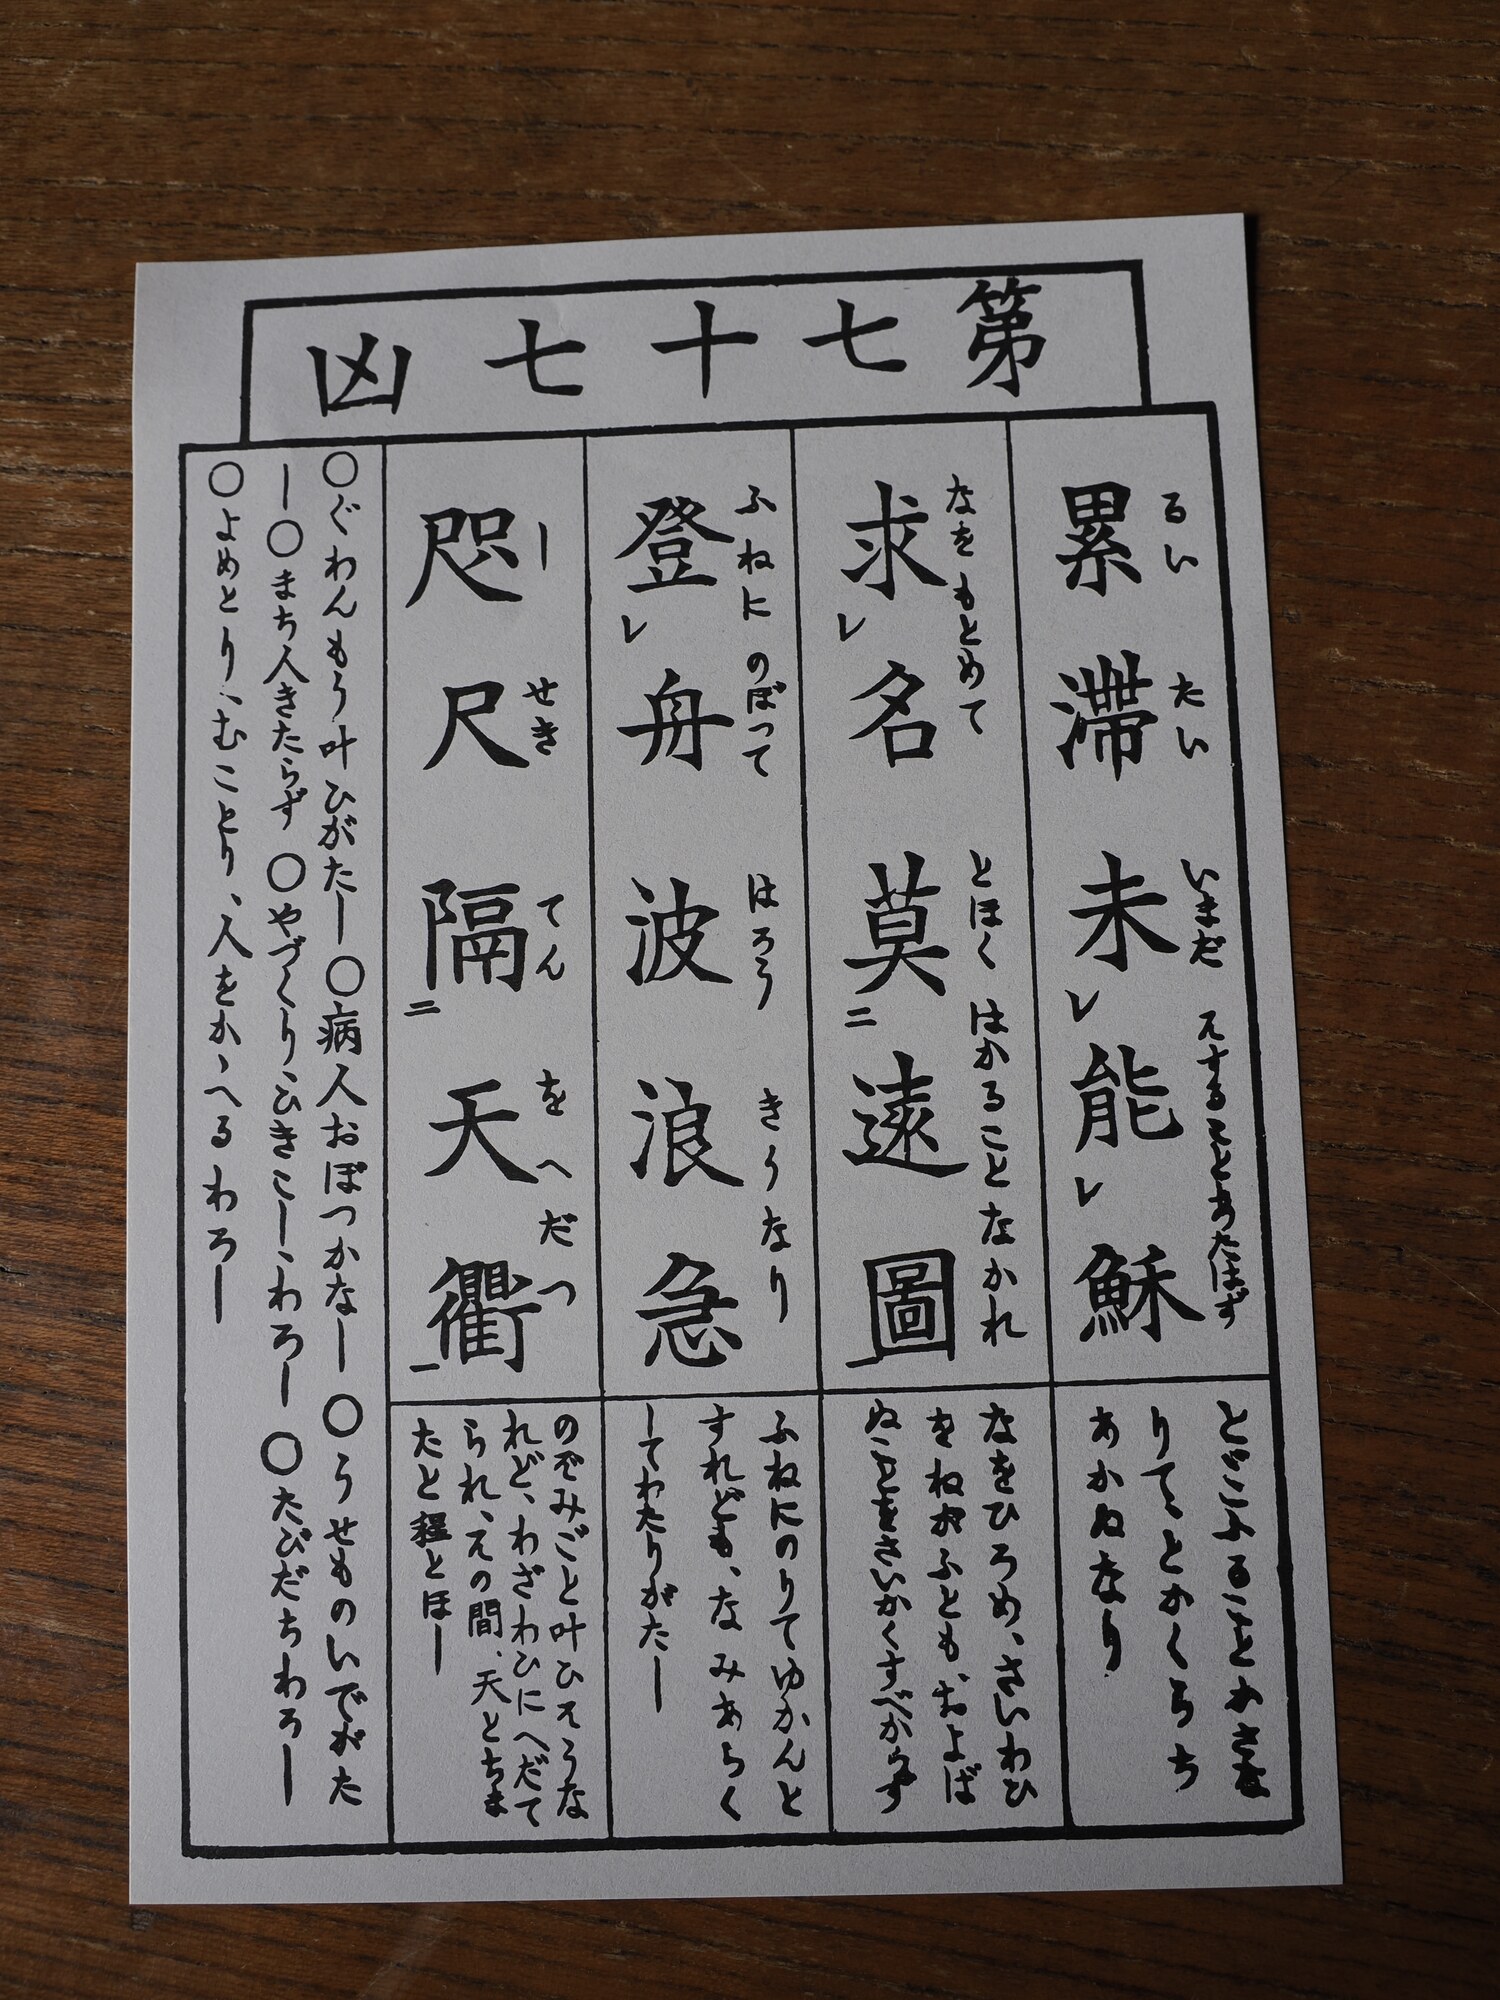 第七十七凶
るいたい いまだ
累滞未レ能レ穌
とゞこふること
りてとかくらち
あかぬなり
なをもとめて とほくはかることなかれ
求レ名莫二遠圖一
なをひろめ、さいわひ
をねがふとも、およば
ぬことをさいかくすべからず
ふねにのぼつて はろうきうなり
登レ舟波浪急
ふねにのりてゆかんと
すれども、なみあらく
してわたりがたし
しせき てんをへだつ
咫尺隔二天衢一
のぞみごと叶ひそうな
れど、わざわひにへだて
られ、その間、天とちま
たと程とほし
○ぐわんもう叶ひがたし ○病人おぼつかなし ○うせものいでがた
し ○まち人きたらず ○やづくり、ひきこし、わろし ○たびだちわろし
○よめとり、むことり、人をかゝへるわろし